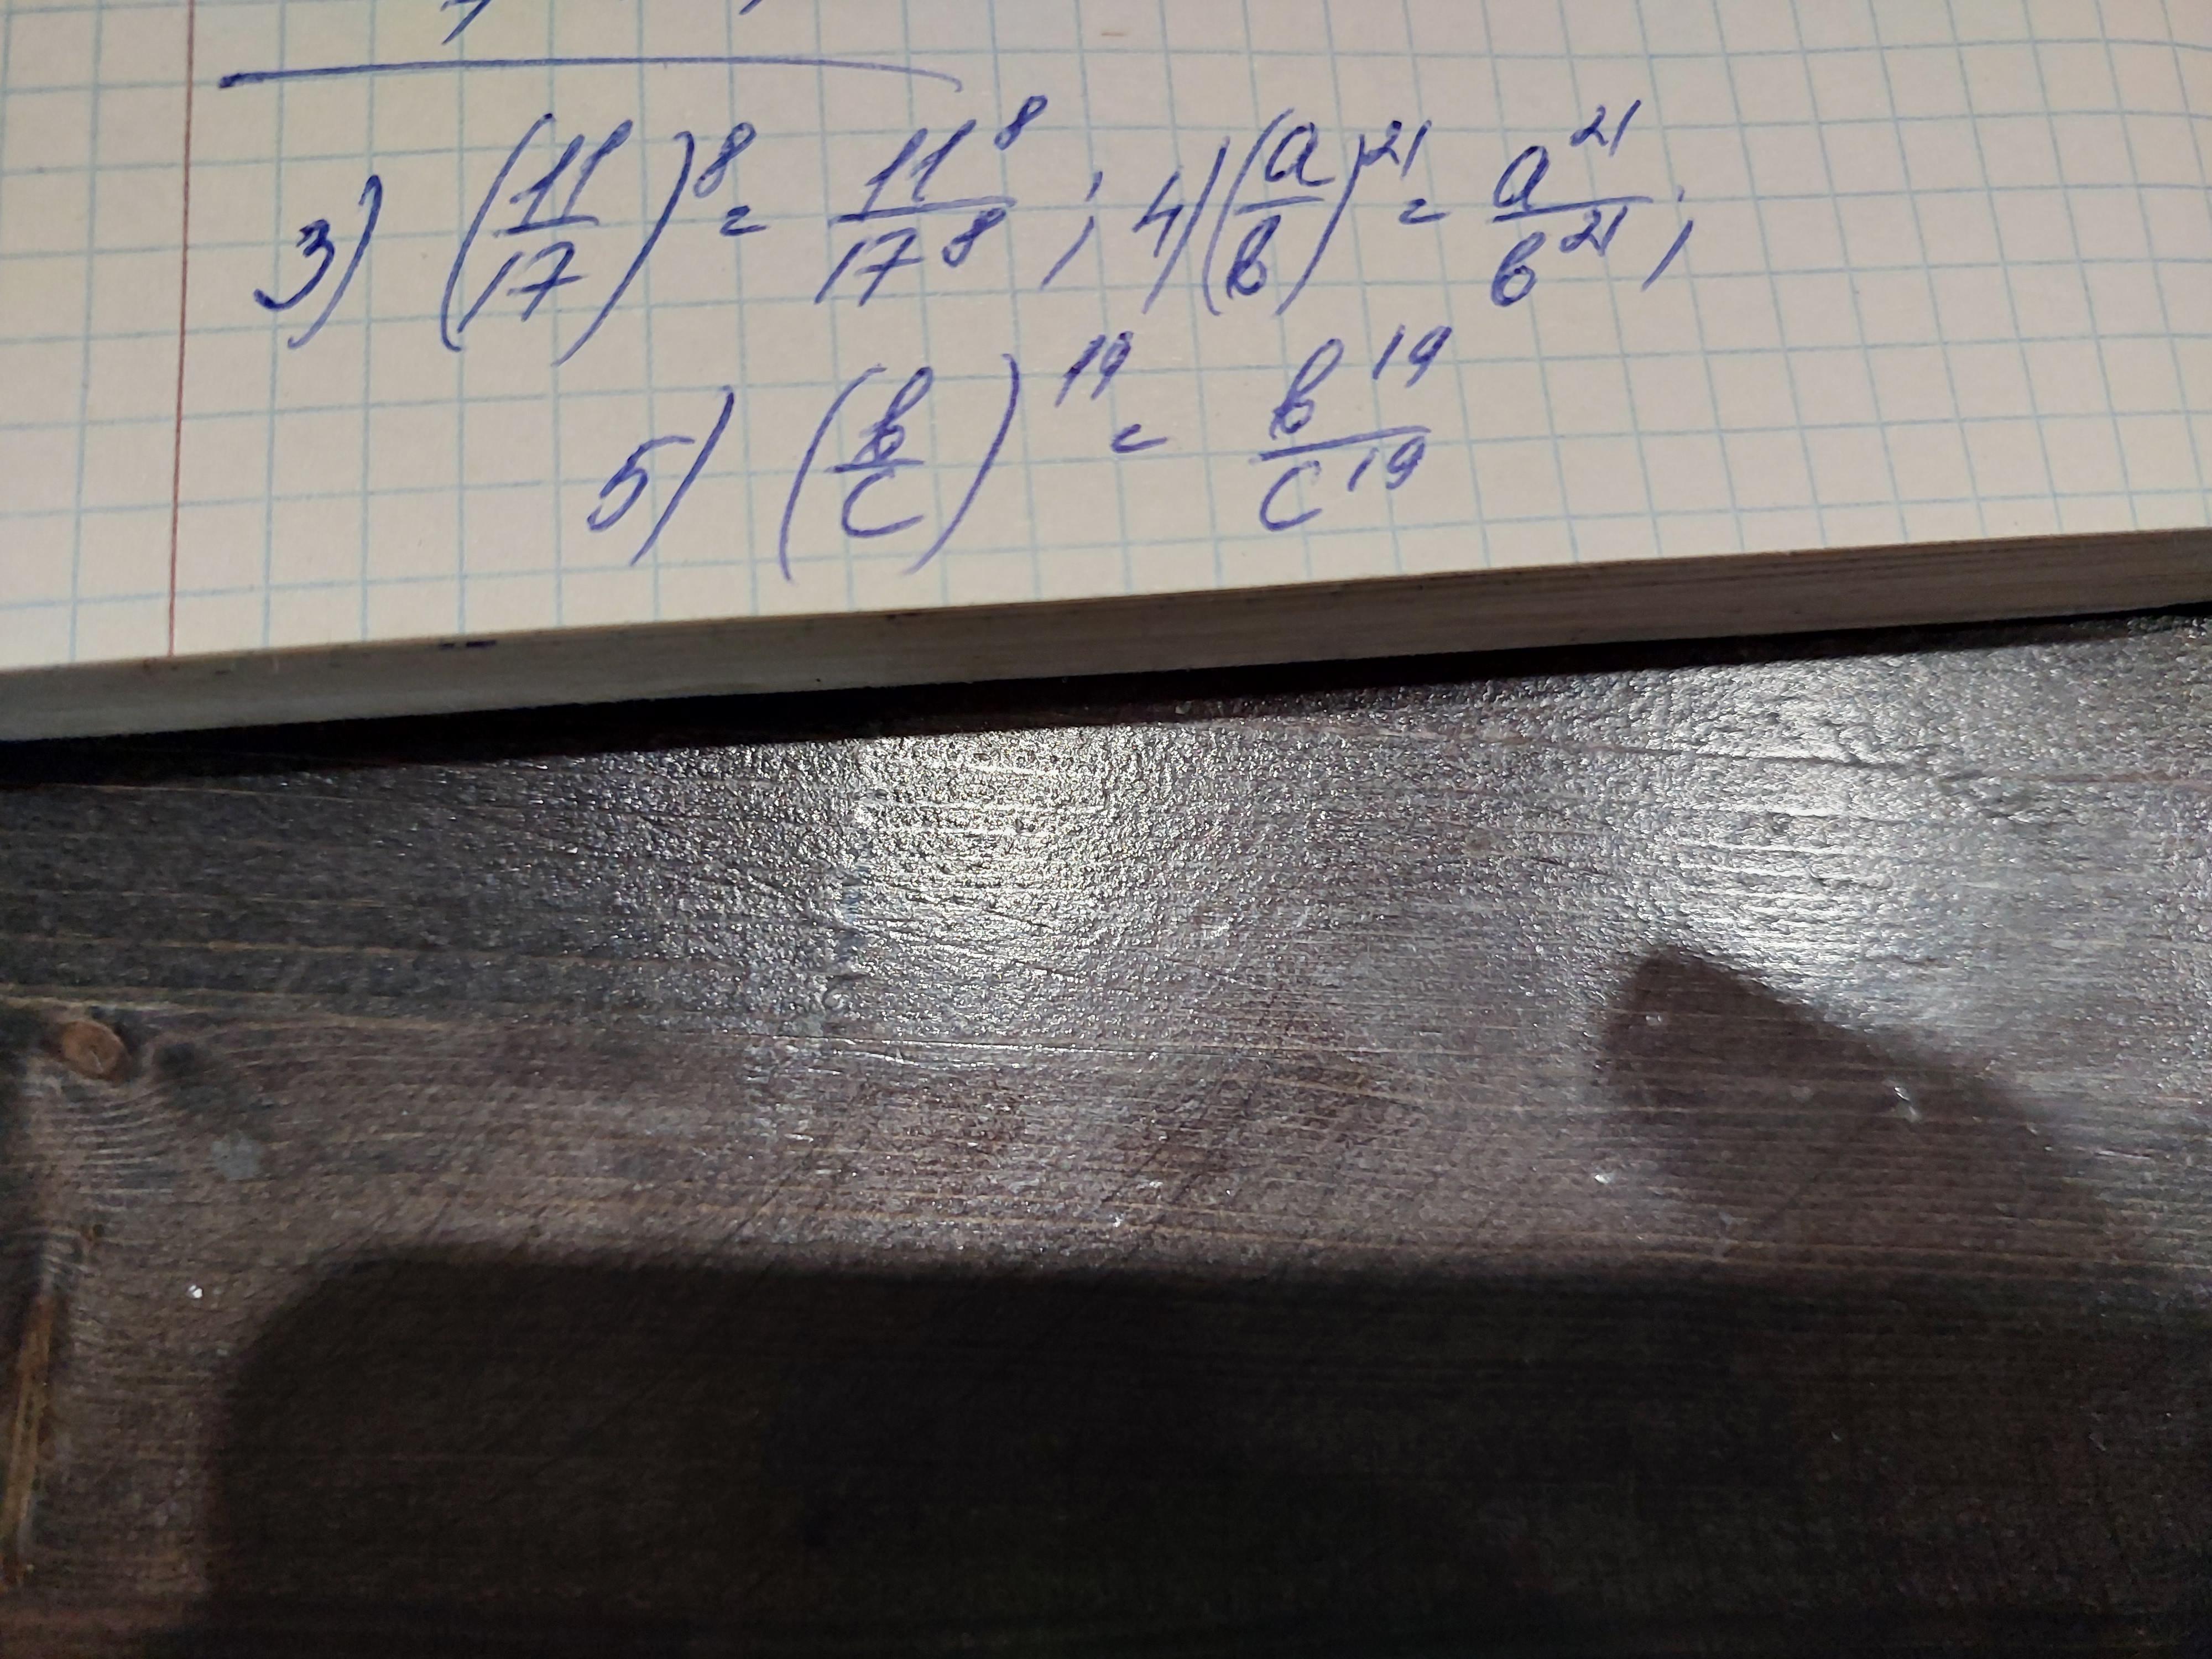 3) (11/17)^8 = 11^8/17^8 ; 4) (a/b)^21 = a^21/b^21 ;
5) (b/c)^19 = b^19/c^19